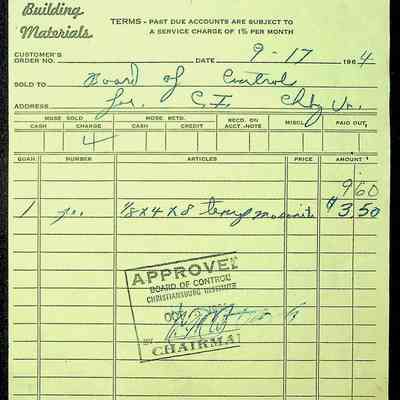 Building
Materials
TERMS - PAST DUE ACCOUNTS ARE SUBJECT TO
A SERVICE CHARGE OF 1% PER MONTH
CUSTOMER'S
ORDER NO. DATE 9-17 1964
SOLD TO Board of Control
ADDRESS for C. I. Chbg Va.
MDSE SOLD MDSE RETD. RECD. ON ACCT.-NOTE MISCL. PAID OUT
CASH CHARGE CASH CREDIT
QUAN NUMBER ARTICLES PRICE AMOUNT
960
1 pc. 1/8 x 4 x 8 temp masonite $3.50
APPROVED
BOARD OF CONTROL
CHRISTIANSBURG INSTITUTE
OCT
BY
CHAIRMAN